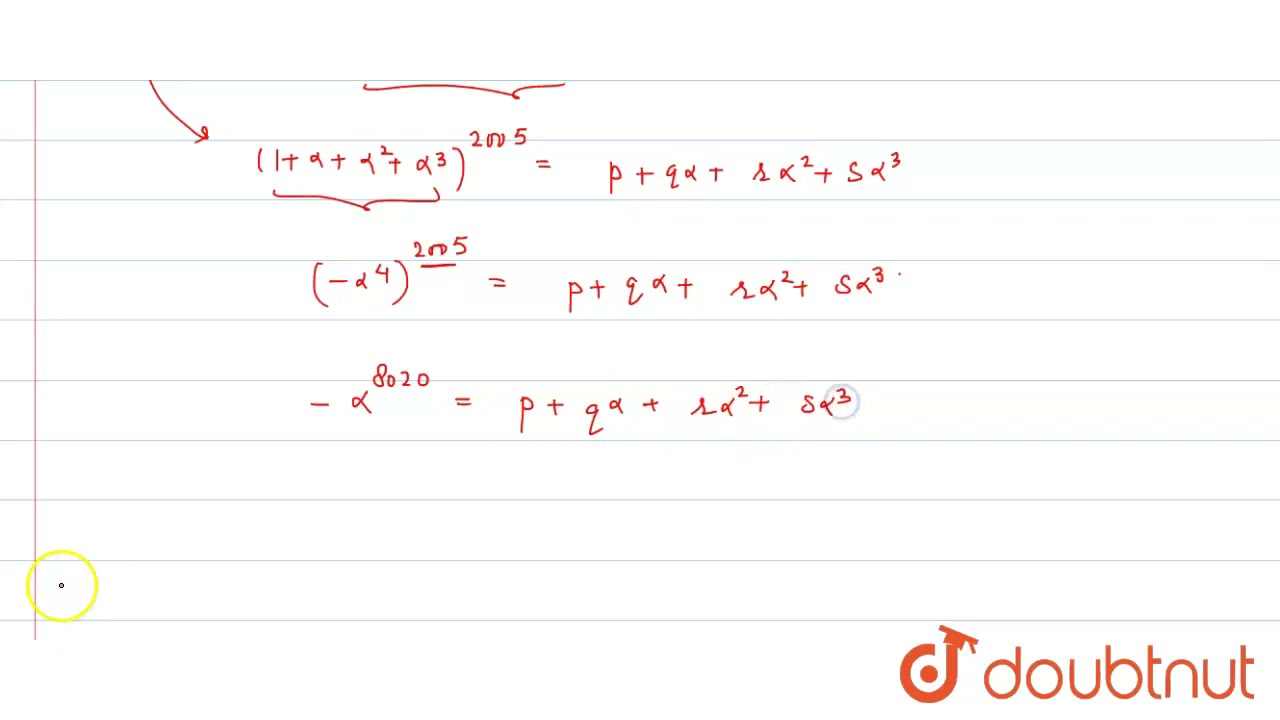 (1+ α + α² + α³)²⁰⁰⁵ = p + qα + rα² + sα³
(-α⁴)²⁰⁰⁵ = p + qα + rα² + sα³.
- α⁸⁰²⁰ = p + qα + rα² + sα³
doubtnut